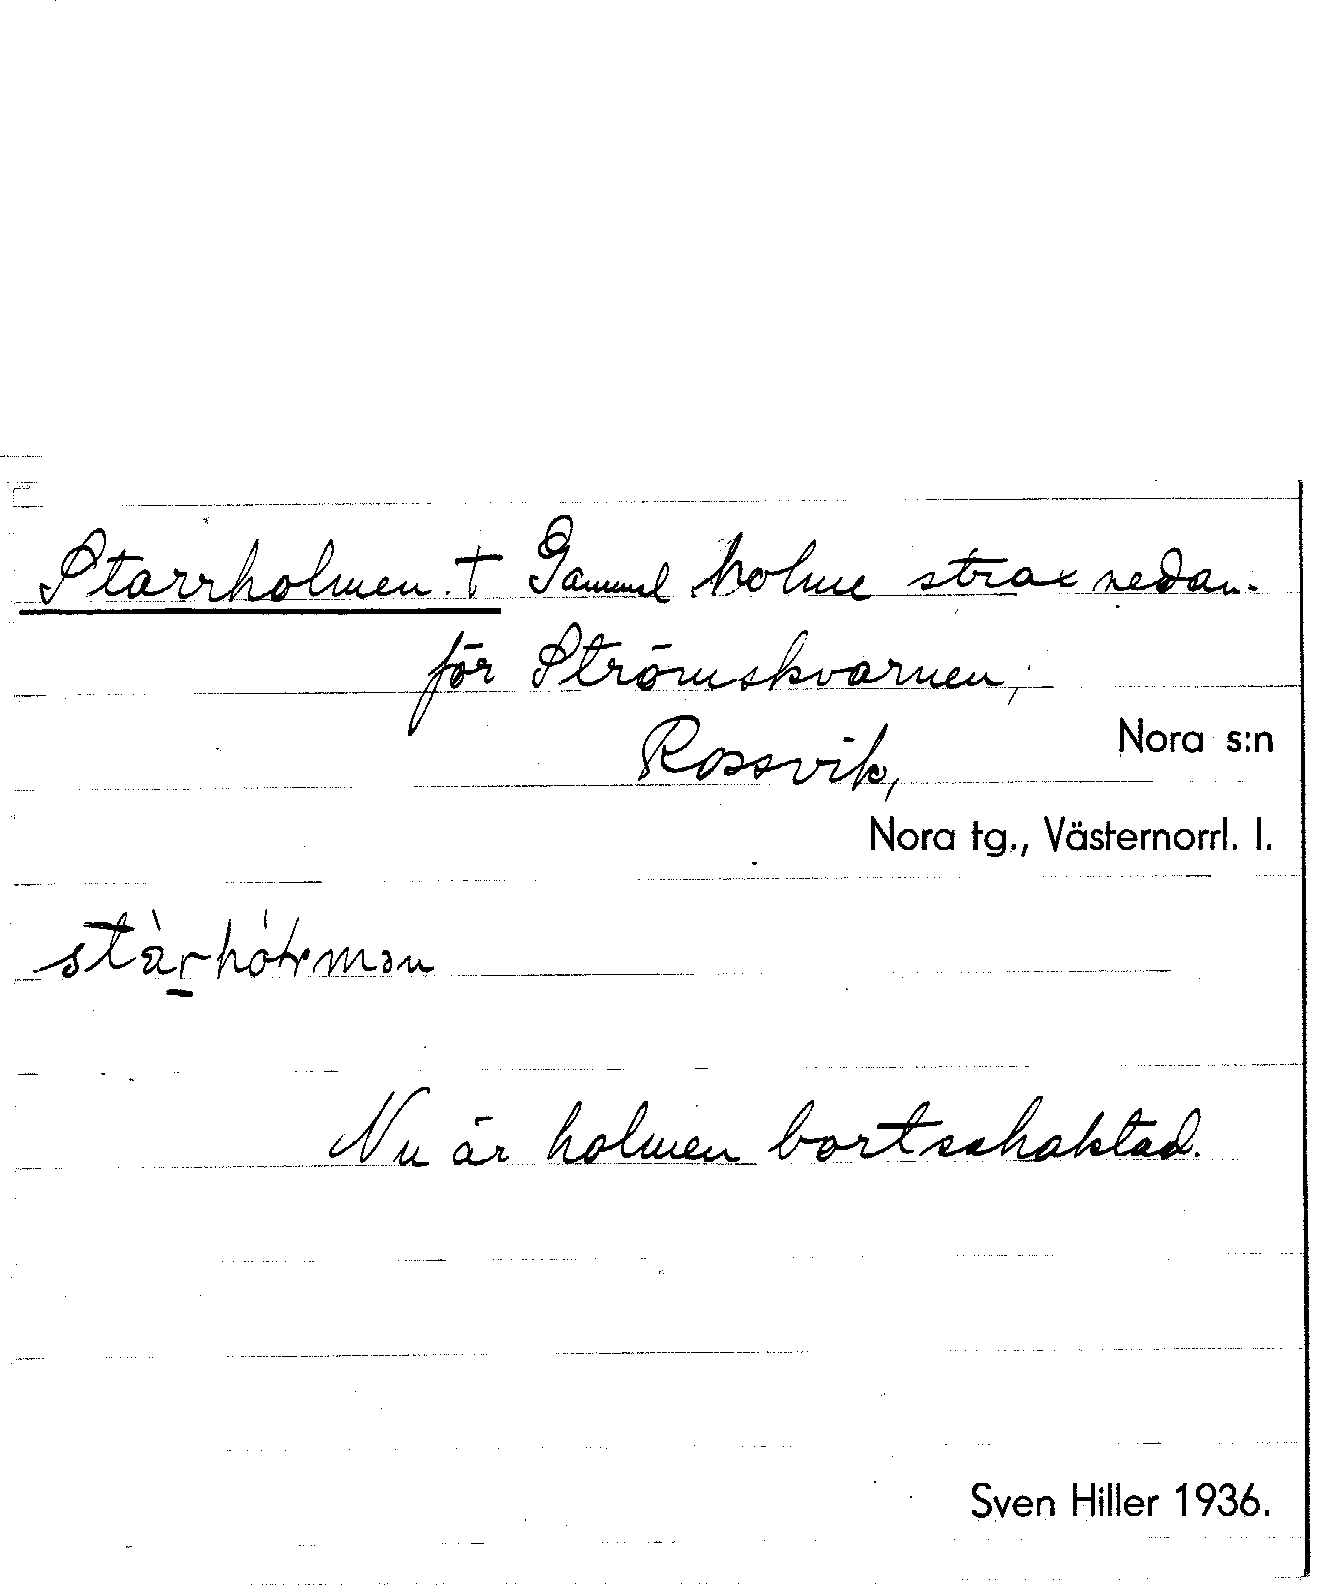 Starrholmen. † Gammal holme strax nedan-
för Strömskvarnen,
Rossvik,
Nora s:n
Nora tg., Västernorrl. l.
Nu är holmen bortschaktad.
Sven Hiller 1936.